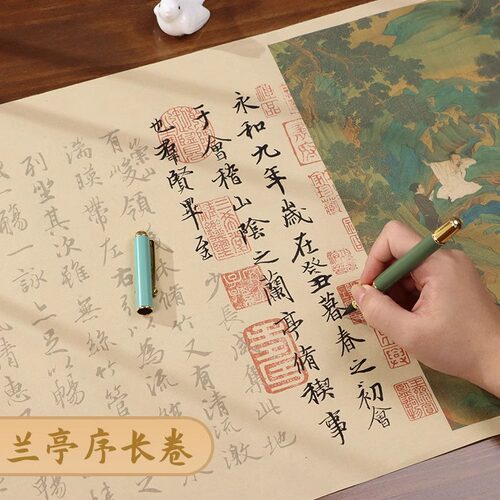 永和九年歲在癸丑暮春之初會
于會稽山陰之蘭亭脩稧事
也羣賢畢至少長咸集此地
有崇山峻領林脩竹又有清流激
湍暎帶左右引以為流
列坐其次雖無絲竹管
觴一詠亦足以暢
清惠
兰亭序长卷